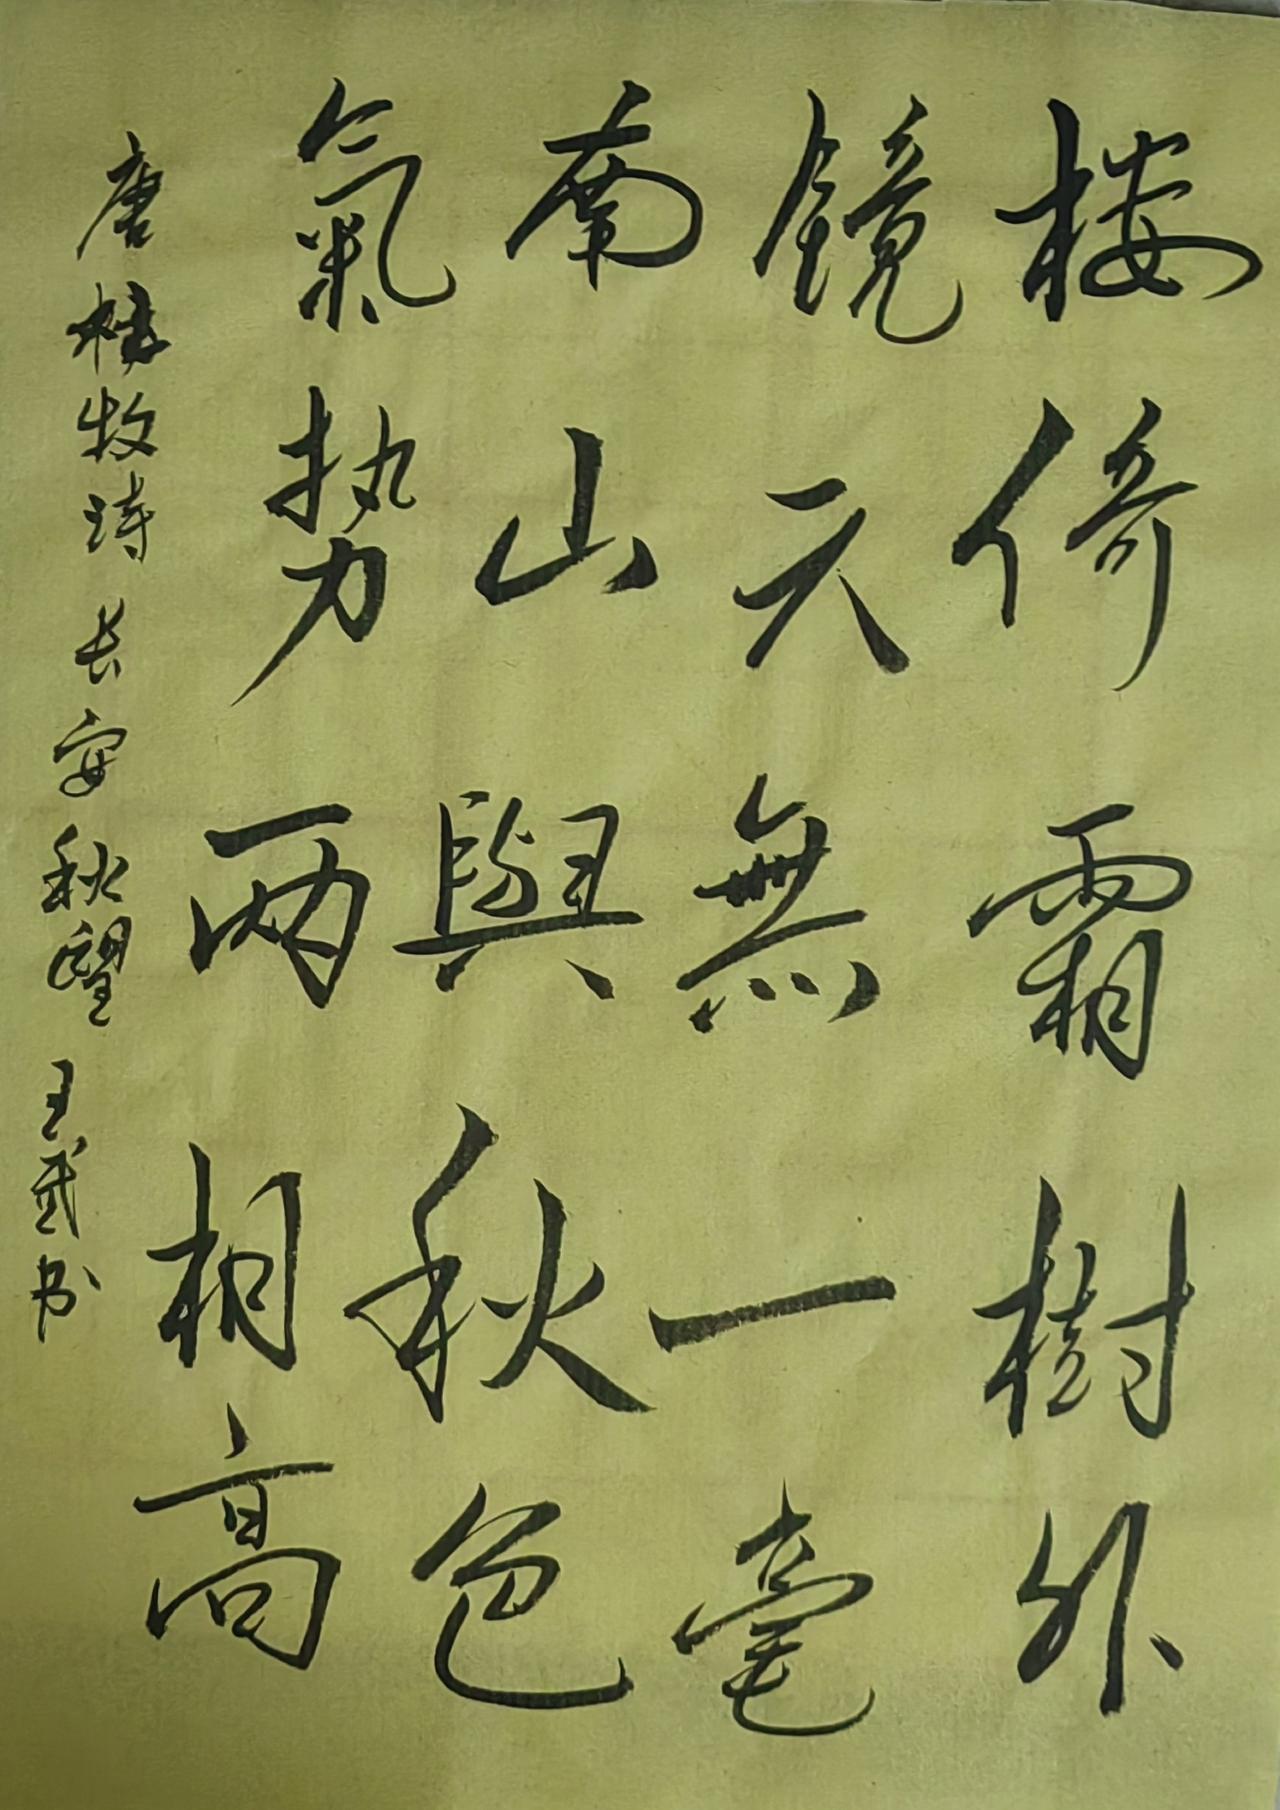 楼倚霜樹外
鏡天無一毫
南山與秋色
氣势两相高
唐杜牧诗 长安秋望 王武书